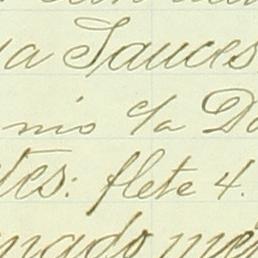 a Sauces
nio c/a Do
tes: flete 4.
mado me